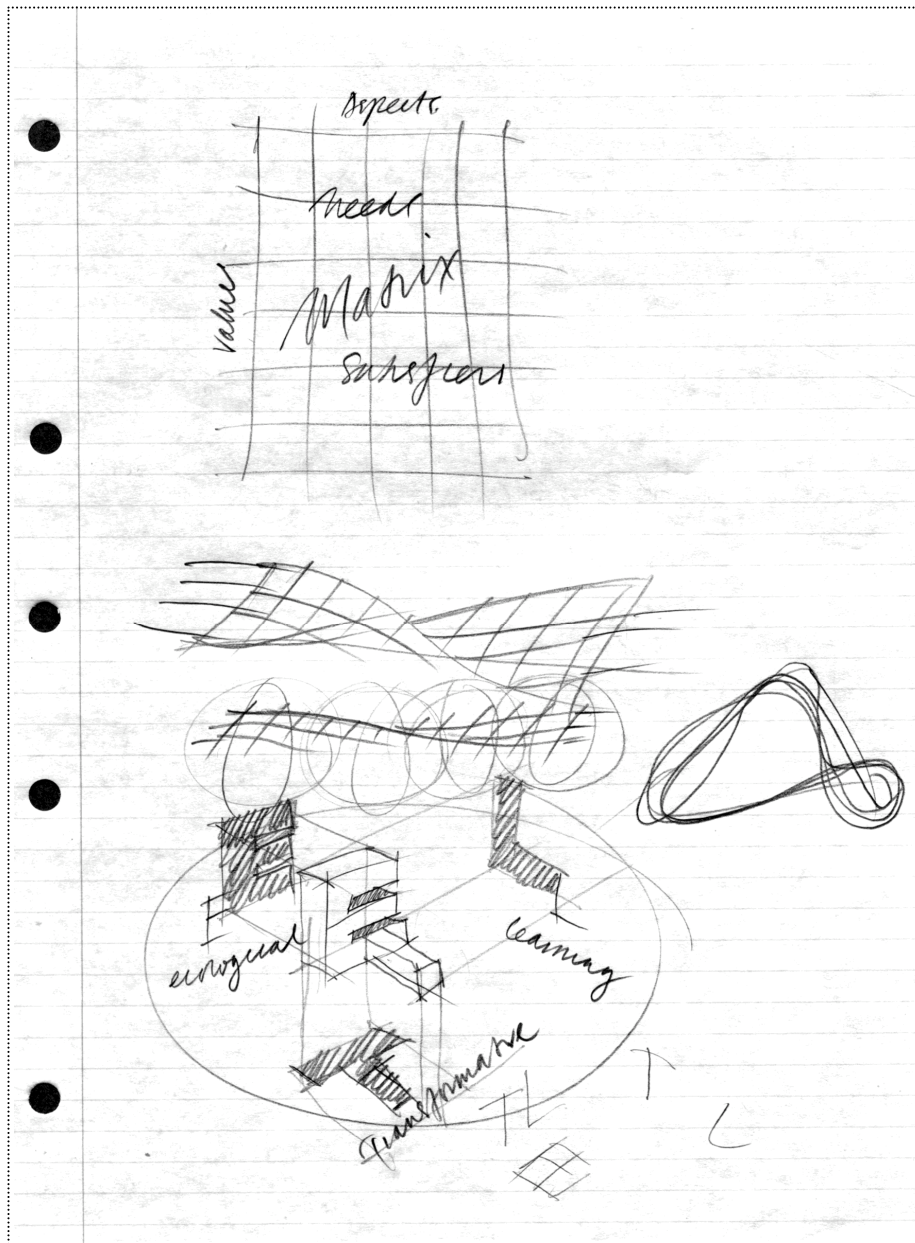 Aspects
needs
Values
Matrix
Satisfiers
ecological
learning
Transformative
TL
T
L